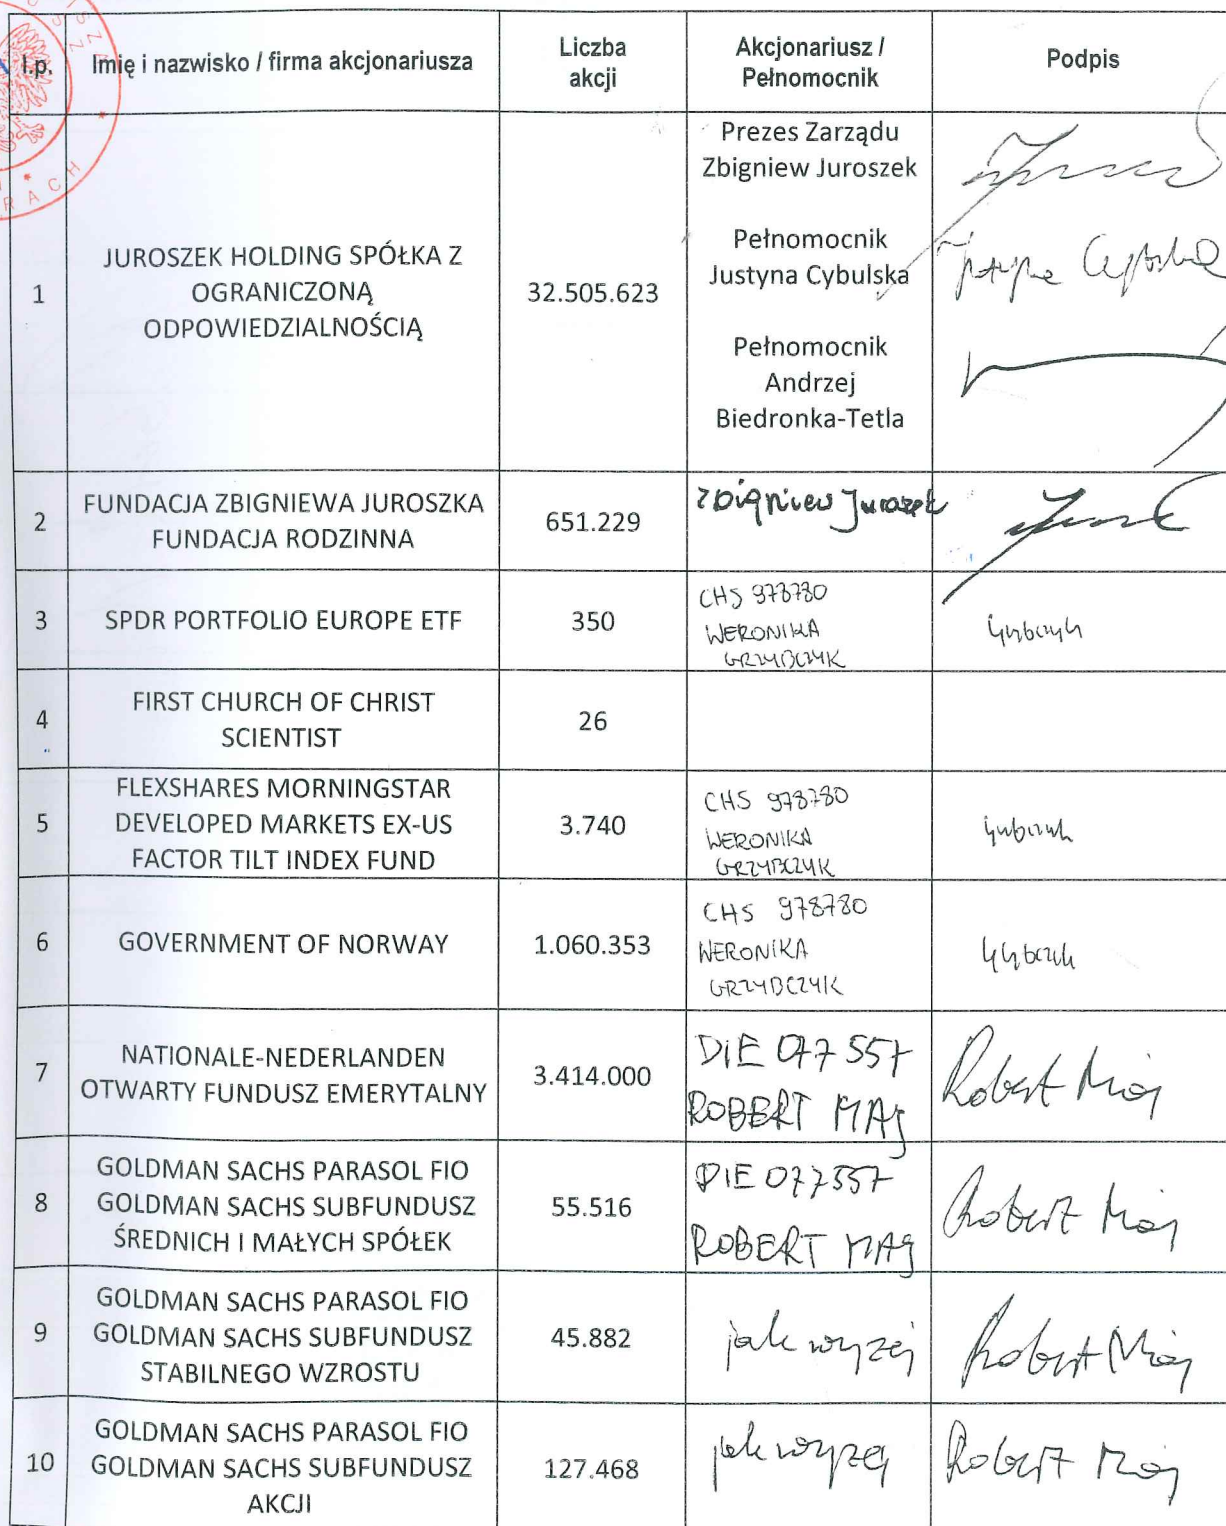 l.p.
Imię i nazwisko / firma akcjonariusza
Liczba
akcji
Akcjonariusz /
Pełnomocnik
Podpis
1
JUROSZEK HOLDING SPÓŁKA Z
OGRANICZONĄ
ODPOWIEDZIALNOŚCIĄ
32.505.623
Prezes Zarządu
Zbigniew Juroszek
Pełnomocnik
Justyna Cybulska
Pełnomocnik
Andrzej
Biedronka-Tetla
2
FUNDACJA ZBIGNIEWA JUROSZKA
FUNDACJA RODZINNA
651.229
Zbigniew Juroszek
3
SPDR PORTFOLIO EUROPE ETF
350
CHS 978780
WERONIKA
GRZYBCZYK
4
FIRST CHURCH OF CHRIST
SCIENTIST
26
5
FLEXSHARES MORNINGSTAR
DEVELOPED MARKETS EX-US
FACTOR TILT INDEX FUND
3.740
CHS 978780
WERONIKA
GRZYBCZYK
6
GOVERNMENT OF NORWAY
1.060.353
CHS 978780
WERONIKA
GRZYBCZYK
7
NATIONALE-NEDERLANDEN
OTWARTY FUNDUSZ EMERYTALNY
3.414.000
DIE 077557
ROBERT MAJ
Robert Maj
8
GOLDMAN SACHS PARASOL FIO
GOLDMAN SACHS SUBFUNDUSZ
ŚREDNICH I MAŁYCH SPÓŁEK
55.516
DIE 077557
ROBERT MAJ
Robert Maj
9
GOLDMAN SACHS PARASOL FIO
GOLDMAN SACHS SUBFUNDUSZ
STABILNEGO WZROSTU
45.882
jak wyżej
Robert Maj
10
GOLDMAN SACHS PARASOL FIO
GOLDMAN SACHS SUBFUNDUSZ
AKCJI
127.468
jak wyżej
Robert Maj